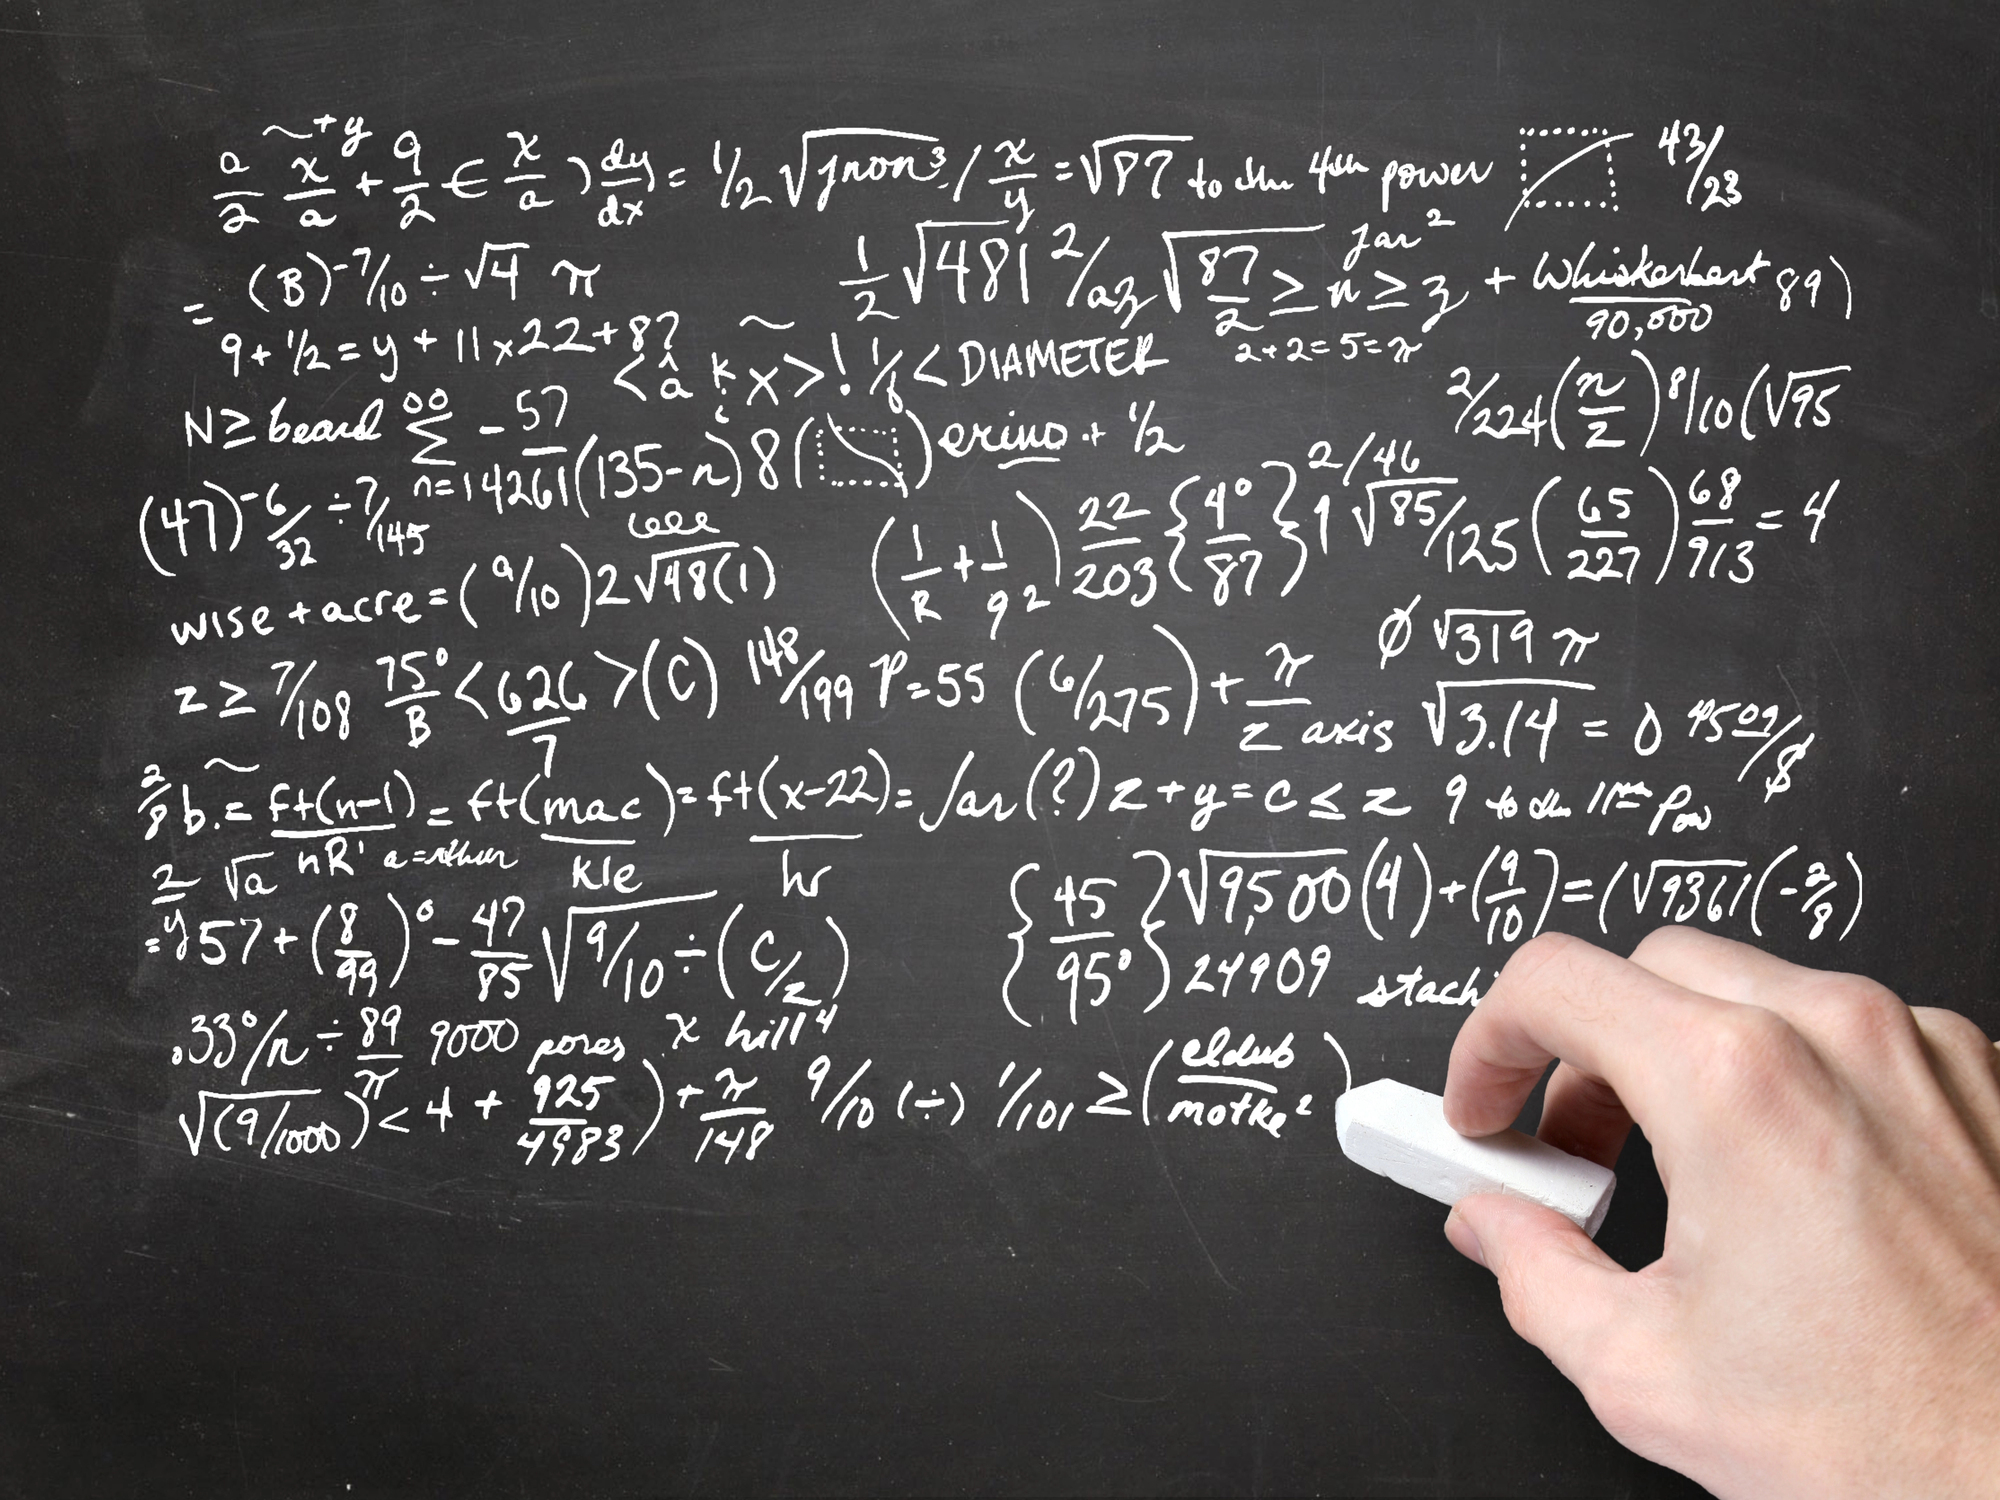 a/2 x/a ~+y + 9/2 € x/a ) dy/dx) = 1/2 √jnon³ / x/y = √87 to the 4th power 43/23
= (B)^-7/10 ÷ √4 π 1/2 √481 2/az √87/2 ≥ n ≥ z jar² + Whiskerbert/90,000 89)
9 + 1/2 = y + 11 x 22 + 87 2+2=5=π
< â k x > ! 1/8 < DIAMETER
N ≥ beard ∞ Σ n=1 -57/4261 (135-n) 8 ( ) erino + 1/2 2/224 (n/z) 8/10 (√95
(47)^-6/32 ÷ 7/145 (1/R + 1/9²) 22/203 {4°/87} 2/46 1 √85/125 (65/227) 68/913 = 4
wise + acre = (9/10) 2 √48(1)
ø √319 π
z ≥ 7/108 75°/B < 626/7 > (C) 148/199 P = 55 (6/275) + π/z axis √3.14 = 0 4509/$
2/8 b. = ft(n-1)/nR' = ft(mac)/kle = ft(x-22)/hr = Jar(?) z + y = c ≤ z 9 to the 11th pow
2/y √a a =
= 57 + (8/99)° - 47/85 √9/10 ÷ (C/z) {45/95°} √9,500 (4) + (9/10) = (√9361 (-2/8)
24909 stach
.33°/n ÷ 89/π 9000 pores x hill⁴
√(9/1000) < 4 + 925/4983) + π/148 9/10 (÷) 1/101 ≥ (eldub/motke²)